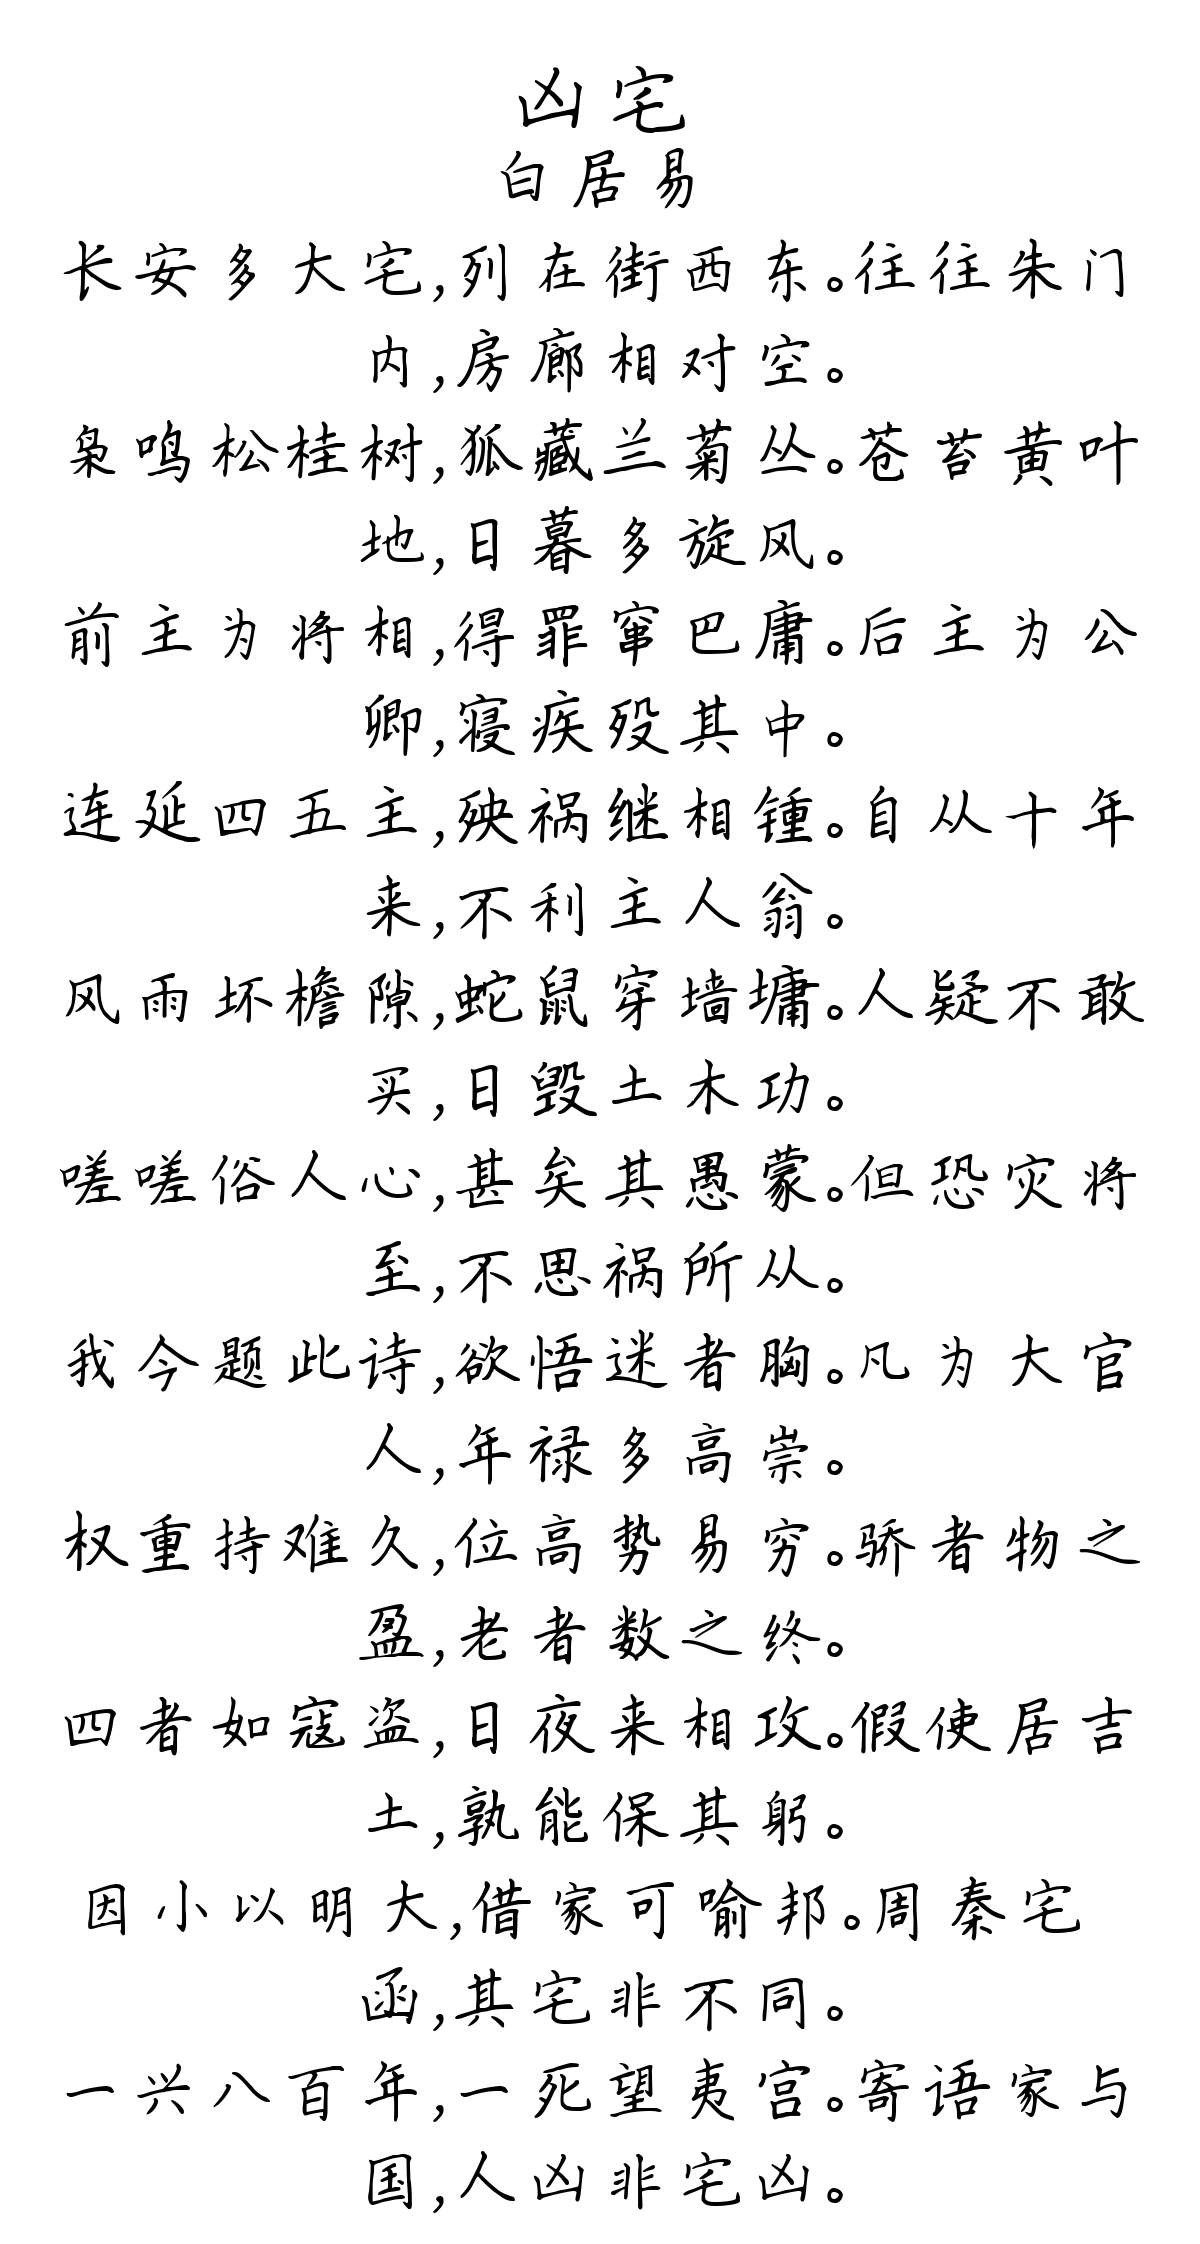 凶宅
白居易
长安多大宅,列在街西东。往往朱门
内,房廊相对空。
枭鸣松桂树,狐藏兰菊丛。苍苔黄叶
地,日暮多旋风。
前主为将相,得罪窜巴庸。后主为公
卿,寝疾殁其中。
连延四五主,殃祸继相锺。自从十年
来,不利主人翁。
风雨坏檐隙,蛇鼠穿墙墉。人疑不敢
买,日毁土木功。
嗟嗟俗人心,甚矣其愚蒙。但恐灾将
至,不思祸所从。
我今题此诗,欲悟迷者胸。凡为大官
人,年禄多高崇。
权重持难久,位高势易穷。骄者物之
盈,老者数之终。
四者如寇盗,日夜来相攻。假使居吉
土,孰能保其躬。
因小以明大,借家可喻邦。周秦宅
函,其宅非不同。
一兴八百年,一死望夷宫。寄语家与
国,人凶非宅凶。